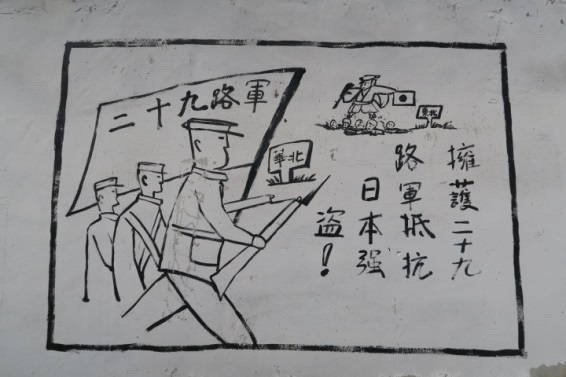 二十九路軍
華北
東北
擁護二十九
路軍抵抗
日本强
盗！